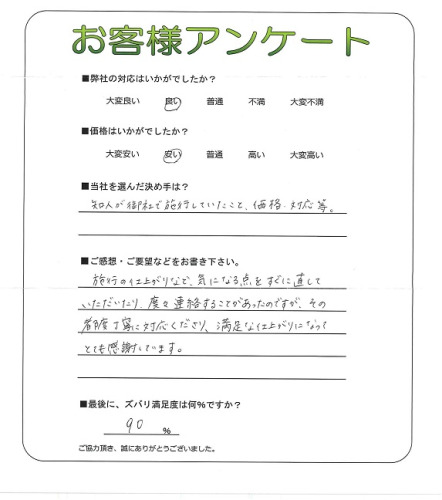 お客様アンケート
■弊社の対応はいかがでしたか？
大変良い 良い 普通 不満 大変不満
■価格はいかがでしたか？
大変安い 安い 普通 高い 大変高い
■当社を選んだ決め手は？
知人が御社で施行していたこと、価格・対応等。
■ご感想・ご要望などをお書き下さい。
施行の仕上がりなで、気になる点をすぐに直して
いただいたり、度々連絡することがあったのですが、その
都度丁寧に対応くださり、満足な仕上がりになって
とても感謝しています。
■最後に、ズバリ満足度は何%ですか？
90 %
ご協力頂き、誠にありがとうございました。